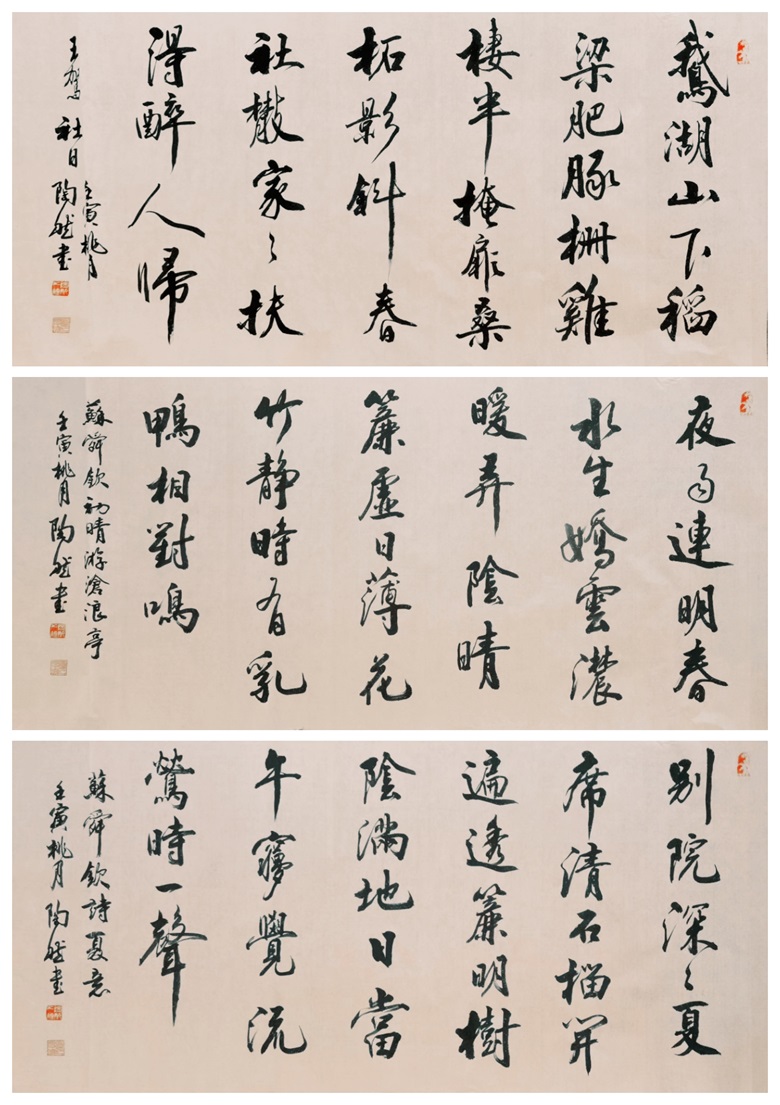 鵝湖山下稻
梁肥豚柵雞
棲半掩扉桑
柘影斜春
社散家々扶
得醉人歸
王駕社日
壬寅桃月
陶然書
夜雨連明春
水生嬌雲濃
暖弄陰晴
簾虛日薄花
竹靜時有乳
鴨相對鳴
蘇舜欽初晴游滄浪亭
壬寅桃月陶然書
別院深々夏
席清石榴開
遍透簾明樹
陰滿地日當
午夢覺流
鶯時一聲
蘇舜欽詩夏意
壬寅桃月陶然書